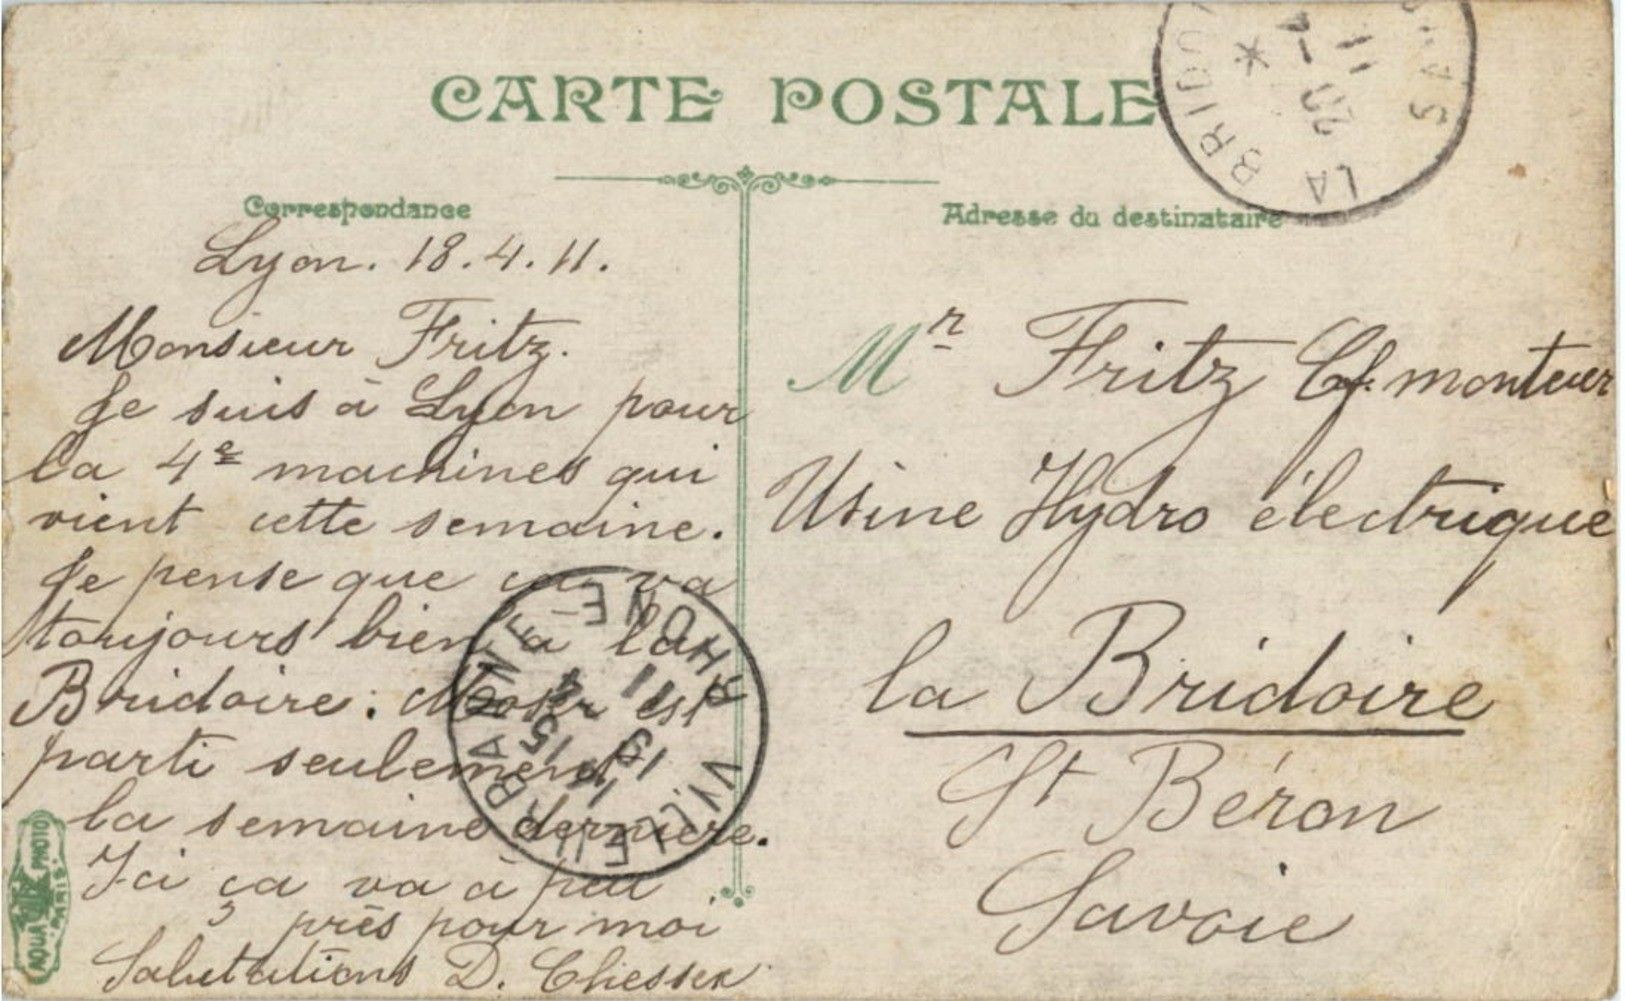 CARTE POSTALE
Correspondance
Lyon. 18.4.11.
Monsieur Fritz.
Je suis à Lyon pour
la 4e machines qui
vient cette semaine.
Je pense que ça va
toujours bien à la
Bridoire. Moser est
parti seulement
la semaine dernière.
Ici ça va à peu
près pour moi
Salutations D.
Adresse du destinataire
Mr Fritz Cf. monteur
Usine Hydro électrique
la Bridoire
St Béron
Savoie
LA BRIDOI
20 -4
11
VILLEURBANNE RHONE
15
19 4
11
AQUA PHOTO
PARIS